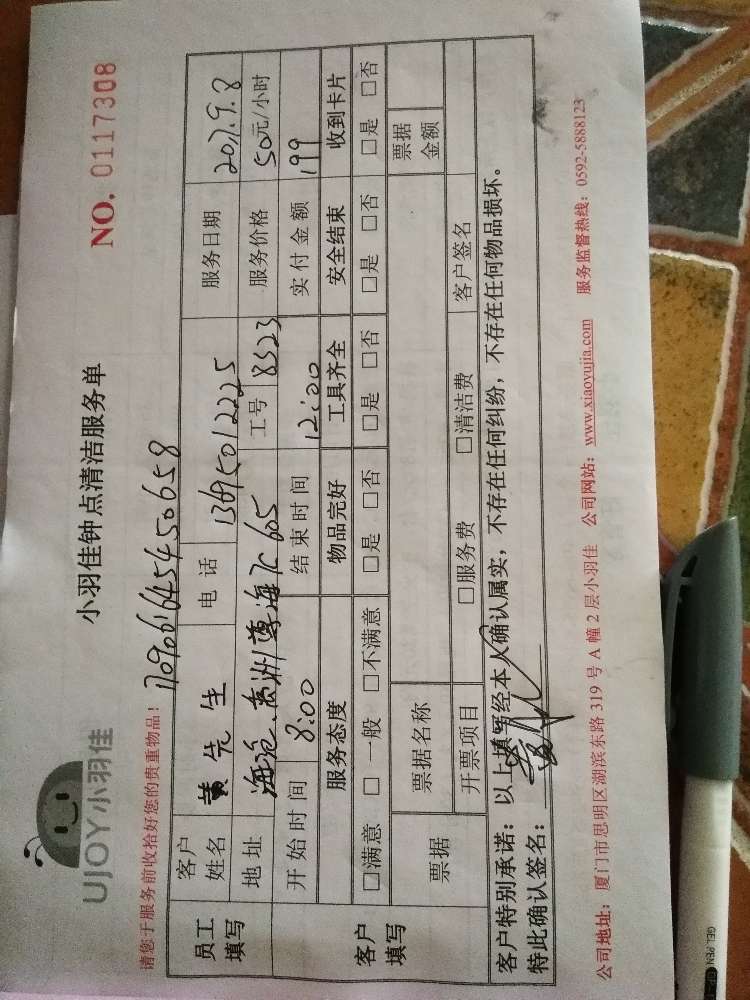 UJOY小羽佳
小羽佳钟点清洁服务单
NO. 0117308
请您于服务前收拾好您的贵重物品！
170906164545 0658
员工填写 客户姓名 黄先生 电话 13695012225 服务日期 2017.9.8
地址 海沧 7C605 工号 8323 服务价格 50元/小时
开始时间 8:00 结束时间 12:00 实付金额 199
客户填写 服务态度 物品完好 工具齐全 安全结束 收到卡片
□满意 □一般 □不满意 □是 □否 □是 □否 □是 □否 □是 □否
票据 票据名称 票据金额
开票项目 □服务费 □清洁费 客户签名
客户特别承诺：以上填写经本人确认属实，不存在任何纠纷，不存在任何物品损坏。
特此确认签名：
公司地址：厦门市思明区湖滨东路 319 号 A 幢 2 层小羽佳 公司网站：www.xiaoyujia.com 服务监督热线：0592-5888123
GEL PEN